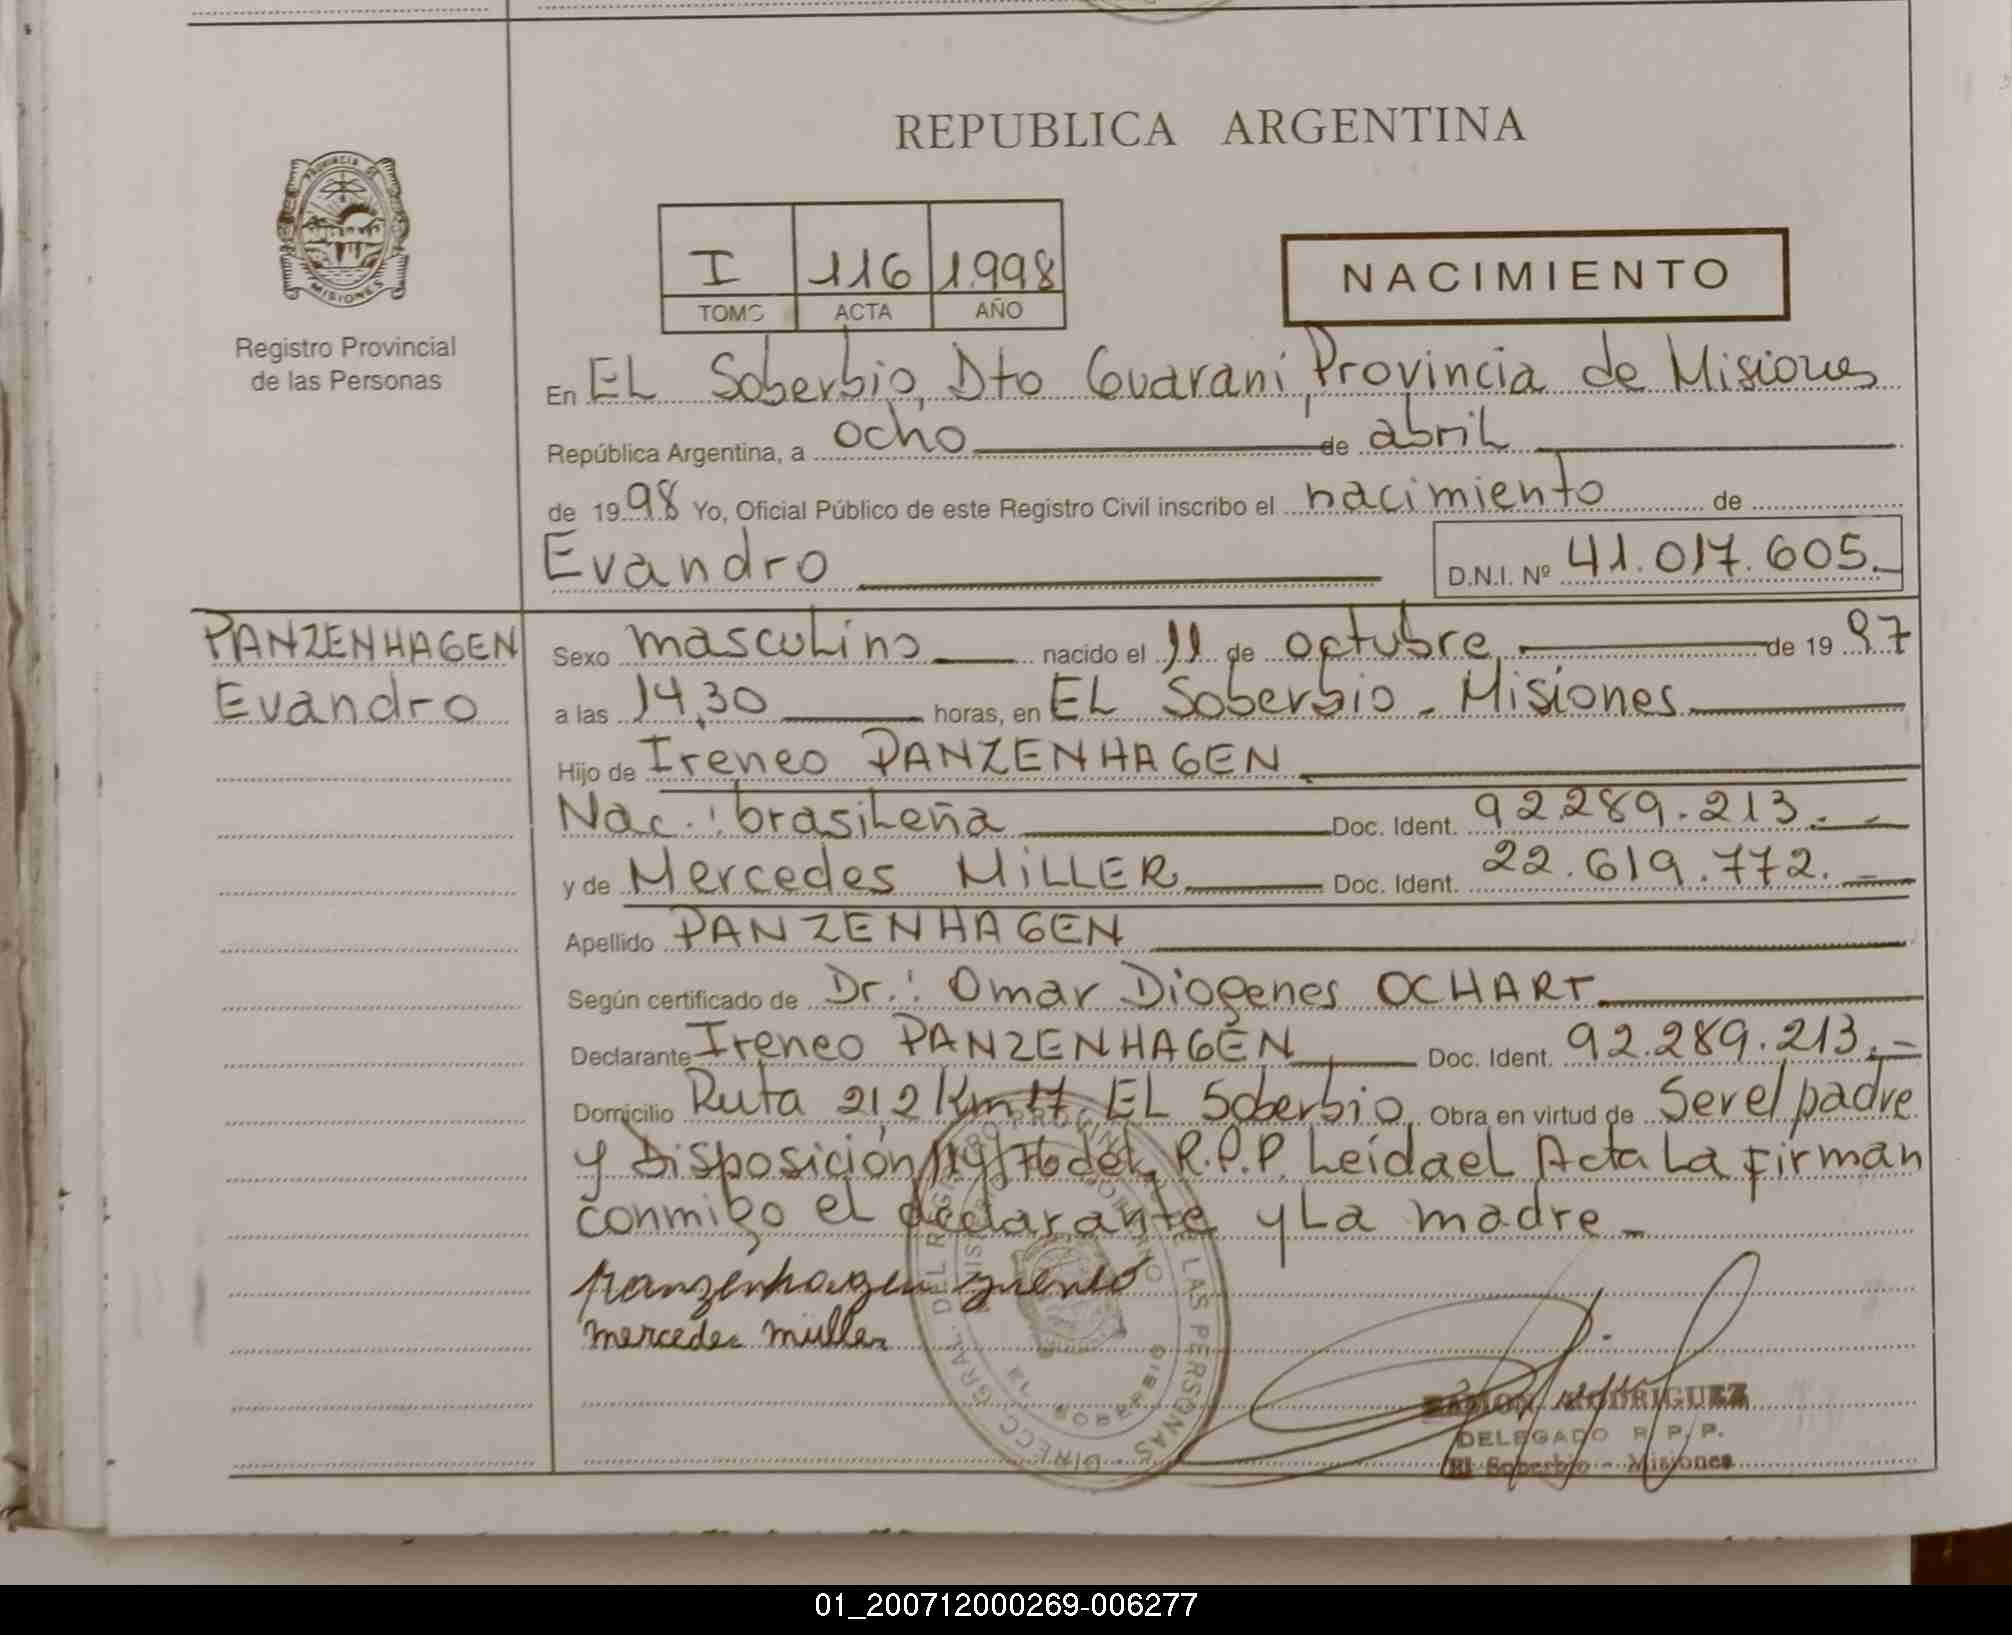 REPUBLICA ARGENTINA
PROVINCIA DE
MISIONES
Registro Provincial
de las Personas
I 116 1.998
TOMO ACTA AÑO
NACIMIENTO
En EL Soberbio, Dto Guaraní, Provincia de Misiones
República Argentina, a ocho de abril
de 1998 Yo, Oficial Público de este Registro Civil inscribo el nacimiento de
Evandro D.N.I. Nº 41.017.605.
PANZENHAGEN
Evandro
Sexo masculino nacido el 11 de octubre de 1997
a las 14,30 horas, en EL Soberbio - Misiones
Hijo de Ireneo PANZENHAGEN
Nac.: brasileña Doc. Ident. 92.289.213.-
y de Mercedes MiLLER Doc. Ident. 22.619.772.-
Apellido PANZENHAGEN
Según certificado de Dr.: Omar Diogenes OCHART
Declarante Ireneo PANZENHAGEN Doc. Ident. 92.289.213.-
Domicilio Ruta 212 Km 17 EL Soberbio Obra en virtud de Ser el padre
y Disposición 119/76 del R.P.P. Leída el Acta La firman
conmigo el declarante y La madre -
panzenhagen
mercedes muller
DIRECC. GRAL. DEL REGISTRO PROVINCIAL DE LAS PERSONAS
EL SOBERBIO
RAMON RODRIGUEZ
DELEGADO R. P. P.
El Soberbio - Misiones
01_200712000269-006277